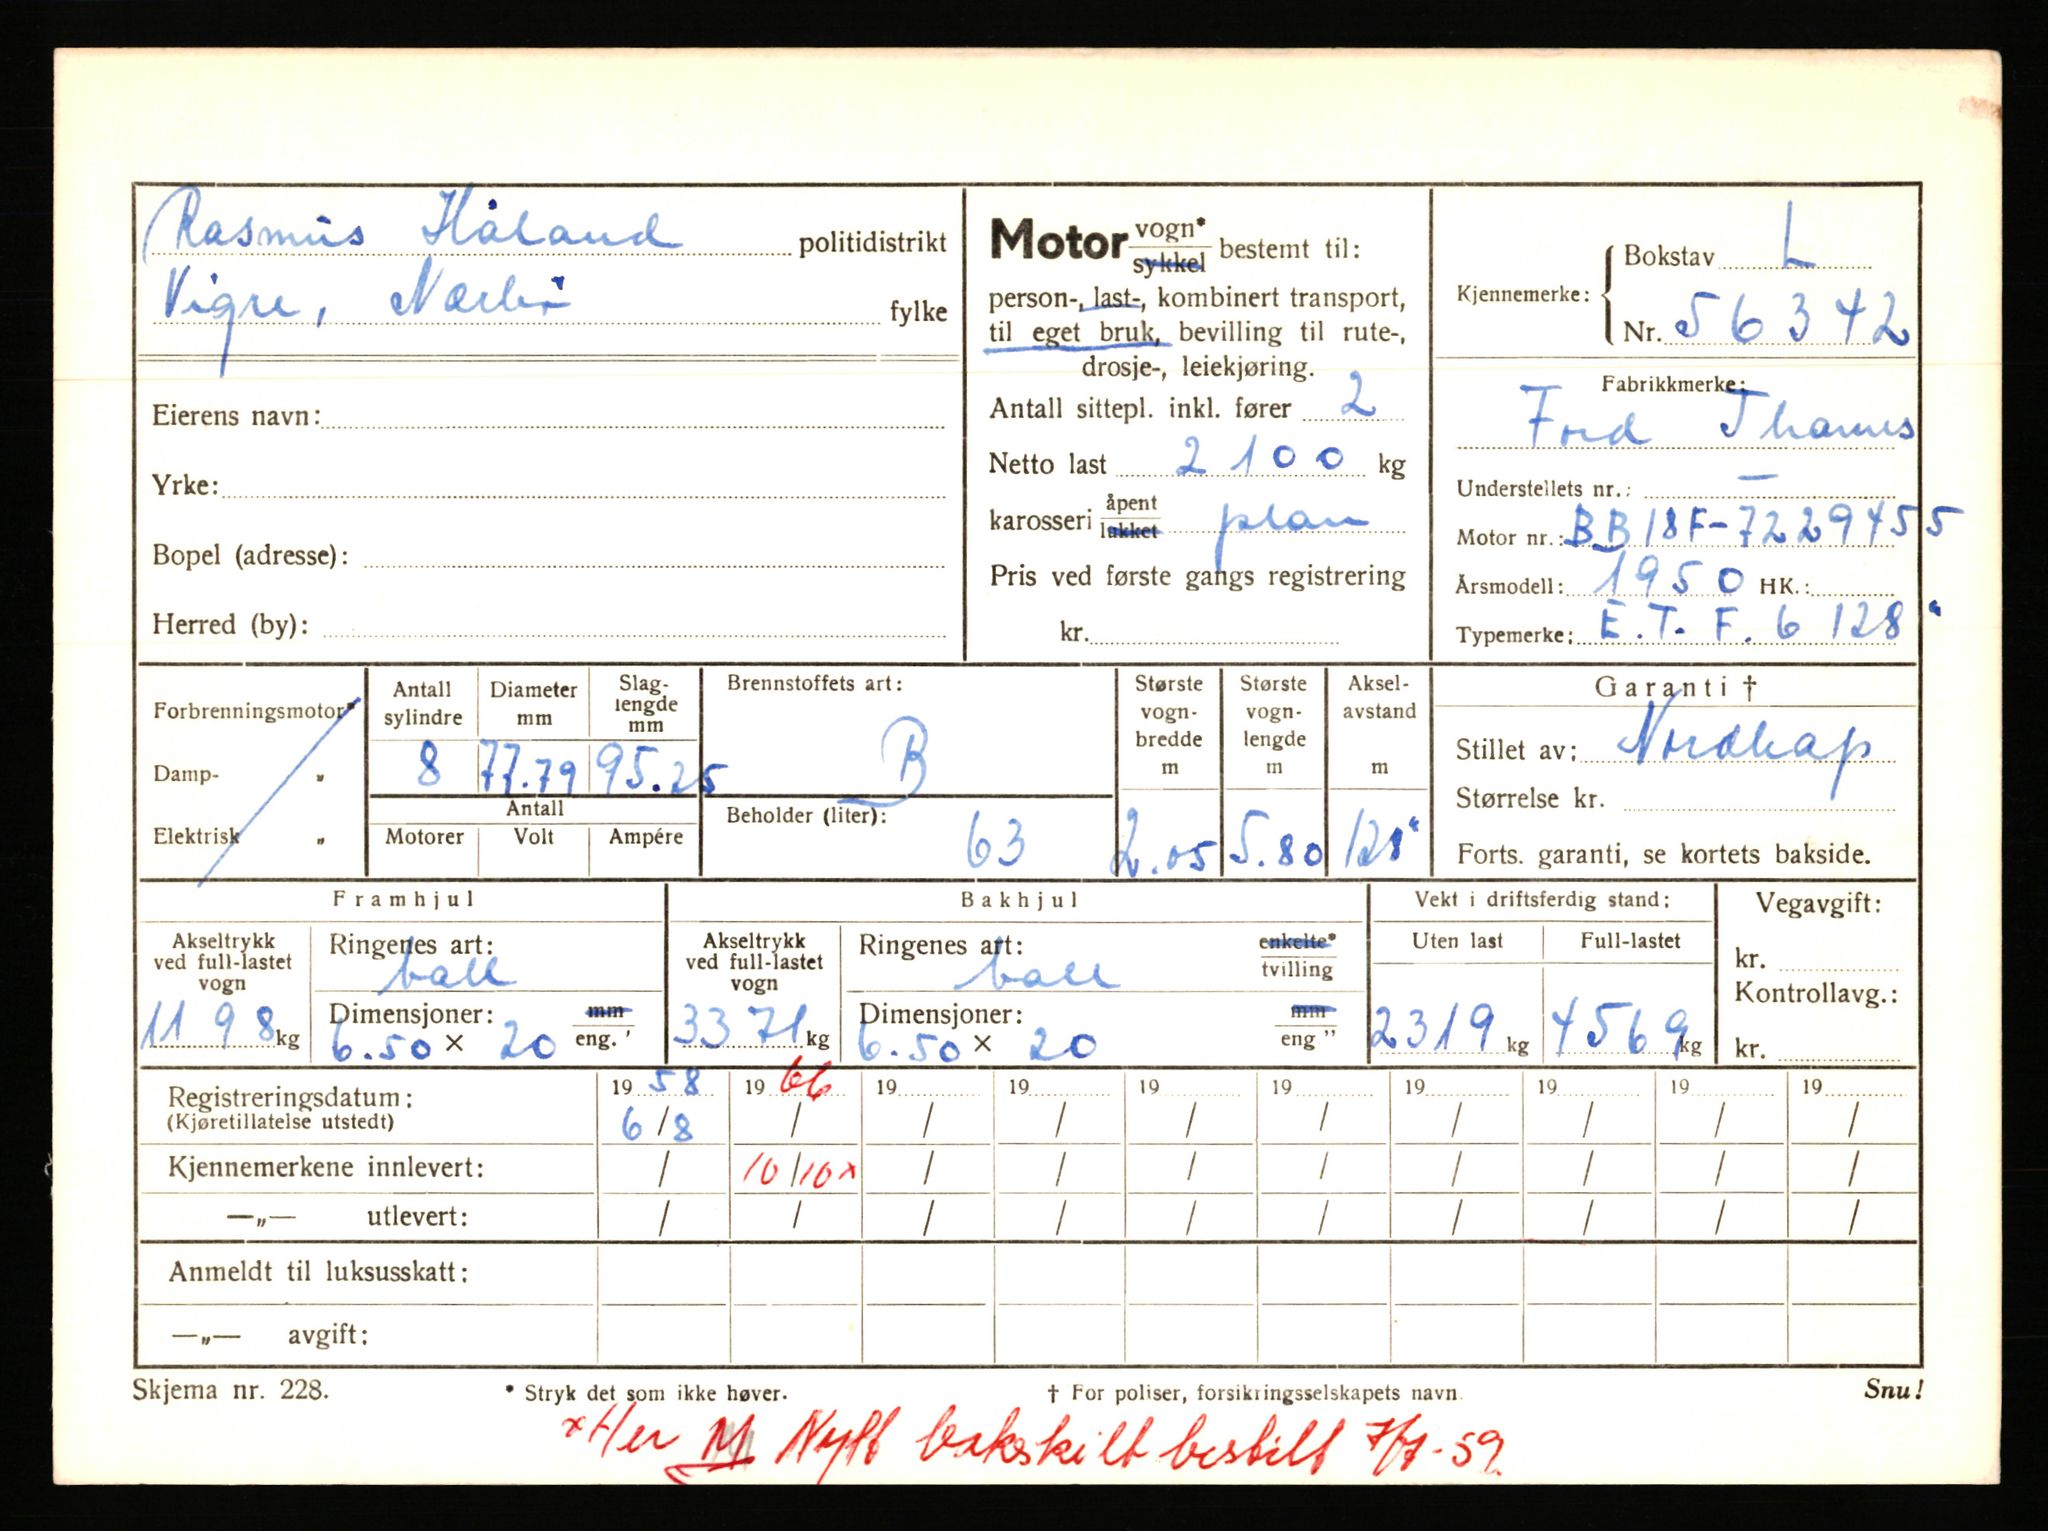 Rasmus Håland politidistrikt
Vigre, Nærbö fylke
Eierens navn:
Yrke:
Bopel (adresse):
Herred (by):
Motor vogn* sykkel bestemt til:
person-, last-, kombinert transport,
til eget bruk, bevilling til rute-,
drosje-, leiekjøring.
Antall sittepl. inkl. fører 2
Netto last 2100 kg
karosseri åpent lukket plan
Pris ved første gangs registrering
kr.
Kjennemerke: Bokstav L
Nr. 56342
Fabrikkmerke:
Ford Thames
Understellets nr.: —
Motor nr.: BB18F-7229455
Årsmodell: 1950 HK.:
Typemerke: E.T.F. 6 128"
Forbrenningsmotor*
Damp- „
Elektrisk „
Antall sylindre 8
Diameter mm 77.79
Slag-lengde mm 95.25
Antall
Motorer Volt Ampére
Brennstoffets art:
B
Beholder (liter): 63
Største vogn-bredde m 2.05
Største vogn-lengde m 5.80
Aksel-avstand m 128"
Garanti †
Stillet av: Nordkap
Størrelse kr.
Forts. garanti, se kortets bakside.
Framhjul
Akseltrykk ved full-lastet vogn 1198 kg
Ringenes art: ball
Dimensjoner: mm
6.50 × 20 eng. '
Bakhjul
Akseltrykk ved full-lastet vogn 3371 kg
Ringenes art: enkelte* tvilling
ball
Dimensjoner: mm
6.50 × 20 eng "
Vekt i driftsferdig stand:
Uten last Full-lastet
2319 kg 4569 kg
Vegavgift:
kr.
Kontrollavg.:
kr.
Registreringsdatum: 19 58 19 66 19 19 19 19 19 19 19 19
(Kjøretillatelse utstedt) 6/8 / / / / / / / / /
Kjennemerkene innlevert: / 10/10 x / / / / / / / /
—„— utlevert: / / / / / / / / / /
Anmeldt til luksusskatt:
—„— avgift:
Skjema nr. 228. * Stryk det som ikke høver. † For poliser, forsikringsselskapets navn. Snu!
x Her M Nytt bakskilt bestilt 7/7-59.